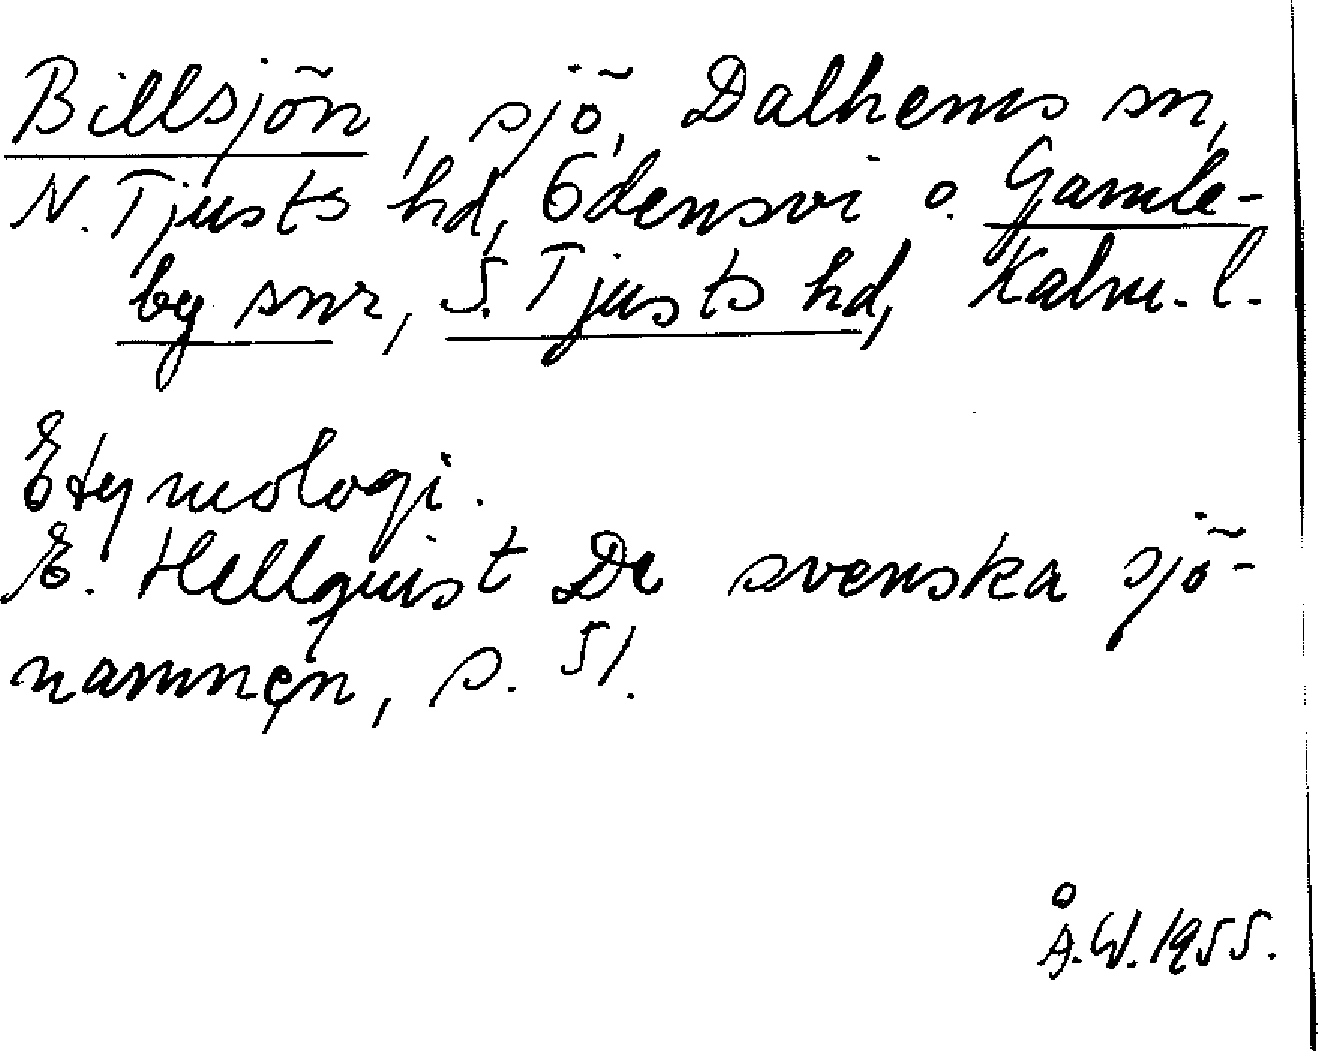 Billsjön, sjö, Dalhems sn,
N. Tjusts hd, Odensvi o. Gamle-
by snr, S. Tjusts hd, Kalm. l.
Etymologi.
E. Hellquist De svenska sjö-
namnen, s. 51.
Å.W. 1955.